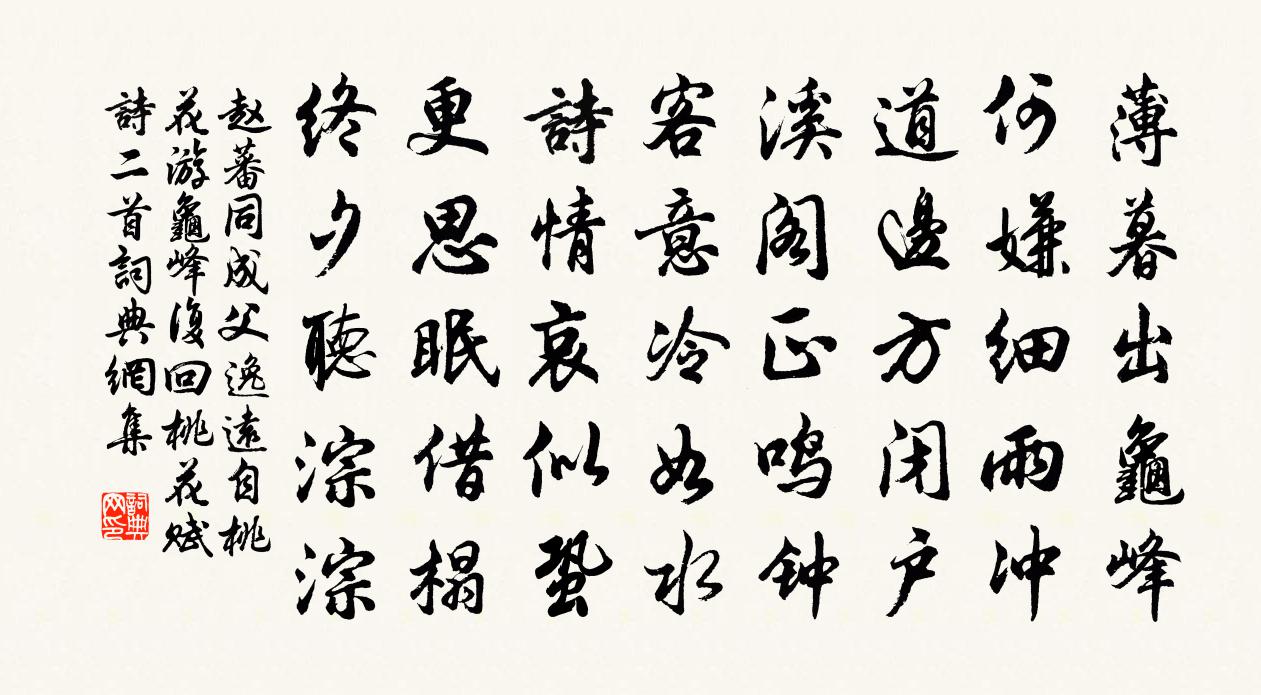 薄暮出龜峰
何嫌细雨冲
道邊方闭户
溪阁正鸣钟
客意冷如水
詩情哀似蛩
更思眠借榻
终夕聽淙淙
赵蕃同成父逸遠自桃
花游龜峰復回桃花赋
詩二首詞典網集
詞典
网印